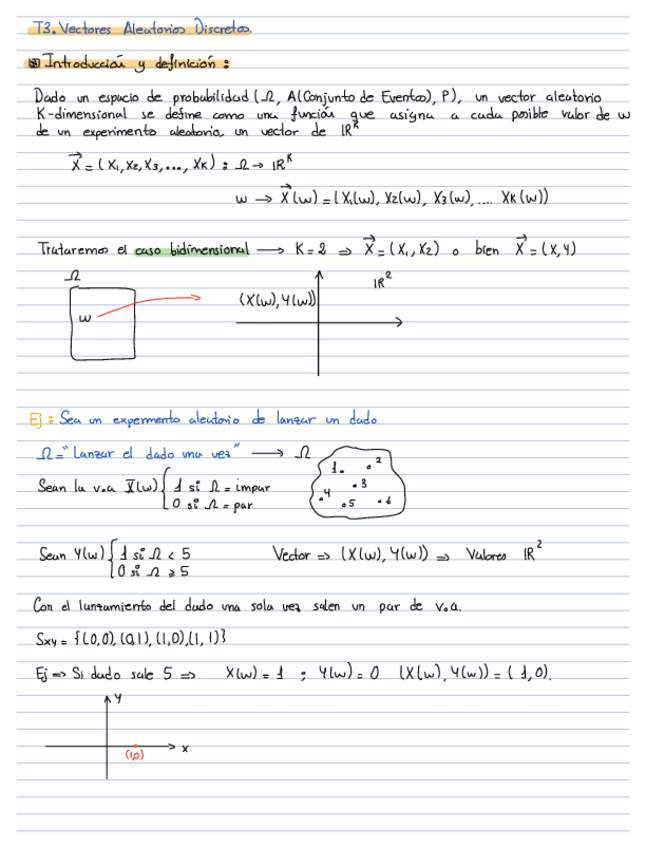 T3. Vectores Aleatorios Discretos.
Introducción y definición :
Dado un espacio de probabilidad (Ω, A(Conjunto de Eventos), P), un vector aleatorio
K-dimensional se define como una función que asigna a cada posible valor de w
de un experimento aleatorio, un vector de IR^K
X⃗ = (X₁, X₂, X₃, ..., X_K) : Ω → IR^K
w → X⃗(w) = (X₁(w), X₂(w), X₃(w), .... X_K(w))
Trataremos el caso bidimensional → K = 2 ⇒ X⃗ = (X₁, X₂) o bien X⃗ = (X, Y)
Ω
IR²
(X(w), Y(w))
w
Ej : Sea un expermento aleatorio de lanzar un dado
Ω = "Lanzar el dado una vez" → Ω
1. . 2
Sean la v.a X(w) { 1 si Ω = impar
. 3
0 si Ω = par
. 4 . 5 . 6
Sean Y(w) { 1 si Ω < 5
0 si Ω ≥ 5
Vector ⇒ (X(w), Y(w)) ⇒ Valores IR²
Con el lanzamiento del dado una sola vez salen un par de v.a.
Sxy = {(0,0), (0,1), (1,0), (1, 1)}
Ej ⇒ Si dado sale 5 ⇒ X(w) = 1 ; Y(w) = 0 (X(w), Y(w)) = (1,0).
Y
X
(1,0)